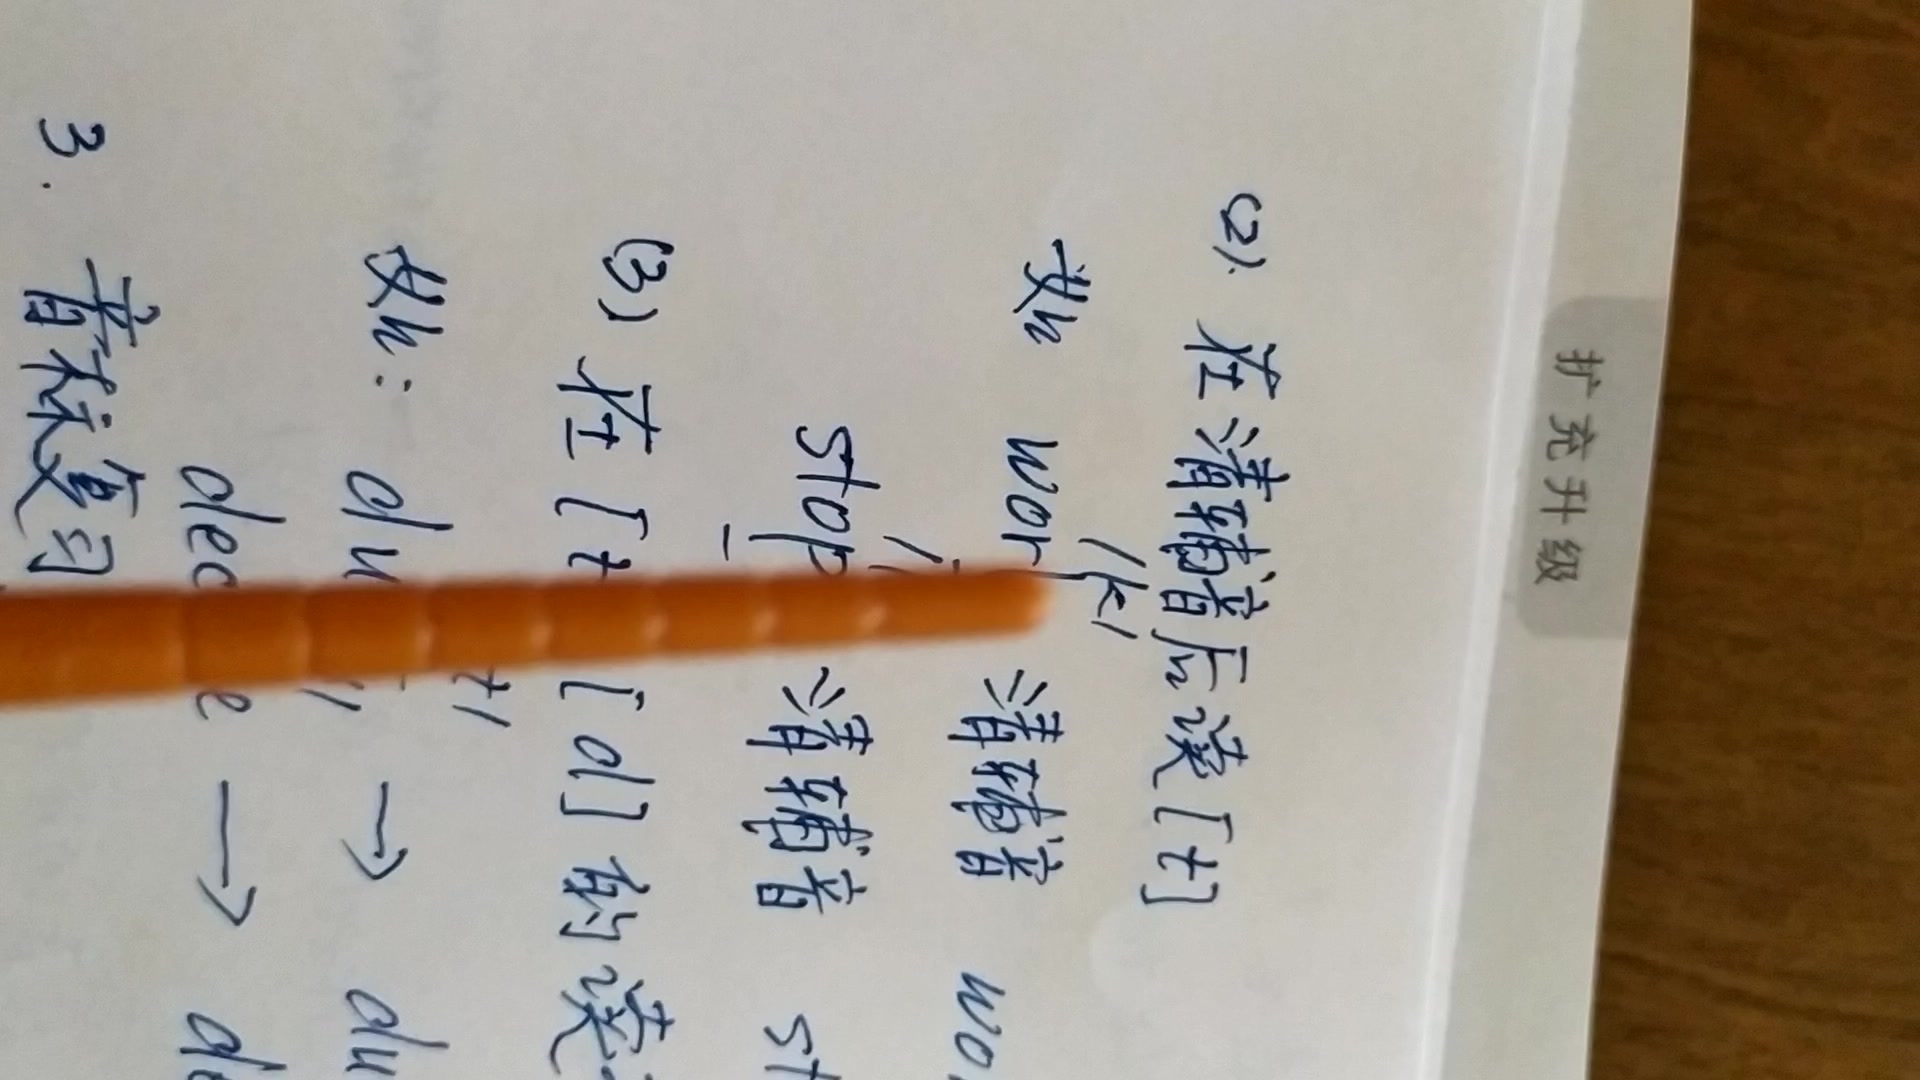 扩充升级
(2). 在清辅音后读[t]
/k/
如 wor 清辅音 wo
stop 清辅音 st
(3) 在[t [d]的读
t/
如: du → du
dec e → de
3. 音标复习